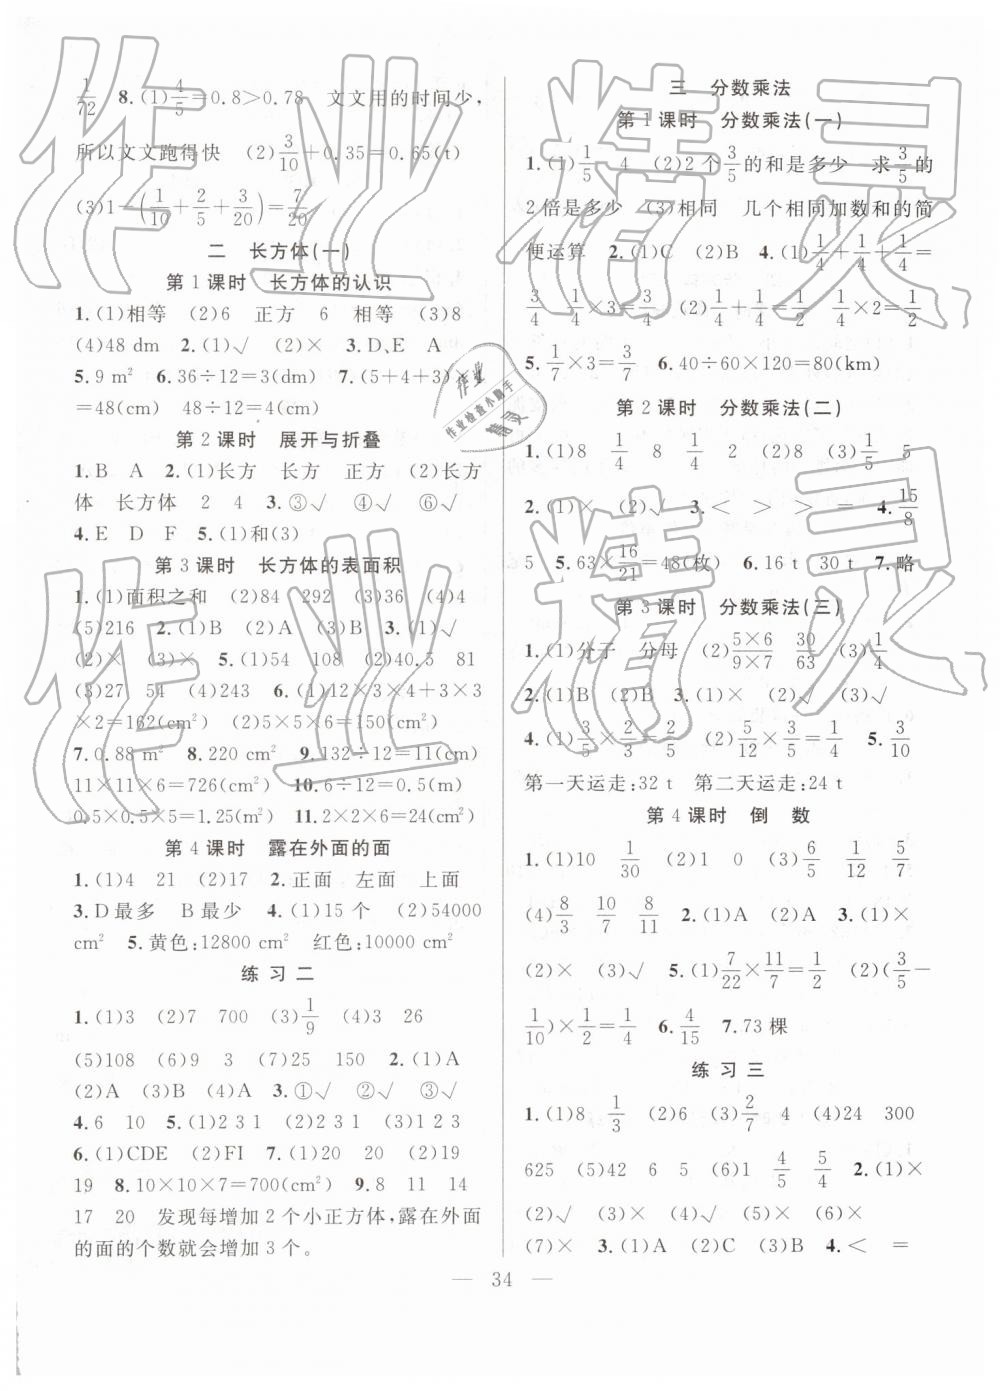 1/72　8.(1)4/5=0.8>0.78　文文用的时间少,
所以文文跑得快　(2)3/10+0.35=0.65(t)
(3)1-(1/10+2/5+3/20)=7/20
二　长方体(一)
第1课时　长方体的认识
1.(1)相等　(2)6　正方　6　相等　(3)8
(4)48 dm　2.(1)√　(2)×　3.D、E　A
5.9 m²　6.36÷12=3(dm)　7.(5+4+3)
=48(cm)　48÷12=4(cm)
第2课时　展开与折叠
1.B　A　2.(1)长方　长方　正方　(2)长方
体　长方体　2　4　3.③√　④√　⑥√
4.E　D　F　5.(1)和(3)
第3课时　长方体的表面积
1.(1)面积之和　(2)84　292　(3)36　(4)4
(5)216　2.(1)B　(2)A　(3)B　3.(1)√
(2)×　(3)×　5.(1)54　108　(2)40.5　81
(3)27　54　(4)243　6.(1)12×3×4+3×3
×2=162(cm²)　(2)5×5×6=150(cm²)
7.0.88 m²　8.220 cm²　9.132÷12=11(cm)
11×11×6=726(cm²)　10.6÷12=0.5(m)
0.5×0.5×5=1.25(m²)　11.2×2×6=24(cm²)
第4课时　露在外面的面
1.(1)4　21　(2)17　2.正面　左面　上面
3.D最多　B最少　4.(1)15个　(2)54000
cm²　5.黄色:12800 cm²　红色:10000 cm²
练习二
1.(1)3　(2)7　700　(3)1/9　(4)3　26
(5)108　(6)3　(7)25　150　2.(1)A
(2)A　(3)B　(4)A　3.①√　②√　③√
4.6　10　5.(1)2 3 1　(2)2 3 1　(3)1 2 3
6.(1)CDE　(2)FI　7.(1)20　20　(2)19
19　8.10×10×7=700(cm²)　9.8　11　14
17　20　发现每增加2个小正方体,露在外面
的面的个数就会增加3个。
三　分数乘法
第1课时　分数乘法(一)
1.(1)1/5　4　(2)2个3/5的和是多少　求3/5的
2倍是多少　(3)相同　几个相同加数和的简
便运算　2.(1)C　(2)B　4.(1)1/4+1/4+1/4=
3/4　1/4×3=3/4　(2)1/4+1/4=1/2　1/4×2=1/2
5.1/7×3=3/7　6.40÷60×120=80(km)
第2课时　分数乘法(二)
1.(1)8　1/4　8　1/4　2　(2)8　(3)1/5　5
2.(1)×　(2)√　3.<　>　>　=　4.15/8
5　5.63×16/21=48(枚)　6.16 t　30 t　7.略
第3课时　分数乘法(三)
1.(1)分子　分母　(2)5×6/9×7　30/63　(3)1/4
2.(1)B　(2)B　3.(1)×　(2)√　(3)√
4.(1)3/5×2/3=2/5　(2)5/12×3/5=1/4　5.3/10
第一天运走:32 t　第二天运走:24 t
第4课时　倒　数
1.(1)10　1/30　(2)1　0　(3)6/5　1/12　5/7
(4)8/3　10/7　8/11　2.(1)A　(2)A　3.(1)×
(2)×　(3)√　5.(1)7/22×11/7=1/2　(2)(3/5-
1/10)×1/2=1/4　6.4/15　7.73棵
练习三
1.(1)8　1/3　(2)6　(3)2/7　4　(4)24　300
625　(5)42　6　5　(6)1　4/5　5/4　2.(1)×
(2)√　(3)√　(4)√　(5)×　(6)×
(7)×　3.(1)A　(2)C　(3)B　4.<　=
— 34 —
作业精灵
作业精灵
作业
作业检查小助手
精灵